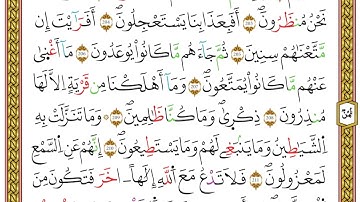 نَحْنُ مُنظَرُونَ أَفَبِعَذَابِنَا يَسْتَعْجِلُونَ أَفَرَٰيْتَ إِن
مَّتَّعْنَٰهُمْ سِنِينَ ثُمَّ جَآءَهُم مَّا كَانُواْ يُوعَدُونَ مَآ أَغْنَىٰ
عَنْهُم مَّا كَانُواْ يُمَتَّعُونَ وَمَآ أَهْلَكْنَا مِن قَرْيَةٍ اِلَّا لَهَا
مُنذِرُونَ ذِكْرَىٰ وَمَا كُنَّا ظَٰلِمِينَ وَمَا تَنَزَّلَتْ بِهِ
اِ۬لشَّيَٰطِينُ وَمَا يَنۢبَغِي لَهُمْ وَمَا يَسْتَطِيعُونَ إِنَّهُمْ عَنِ اِ۬لسَّمْعِ
لَمَعْزُولُونَ فَلَا تَدْعُ مَعَ اَ۬للَّهِ إِلَٰهاً اٰخَرَ فَتَكُونَ مِنَ